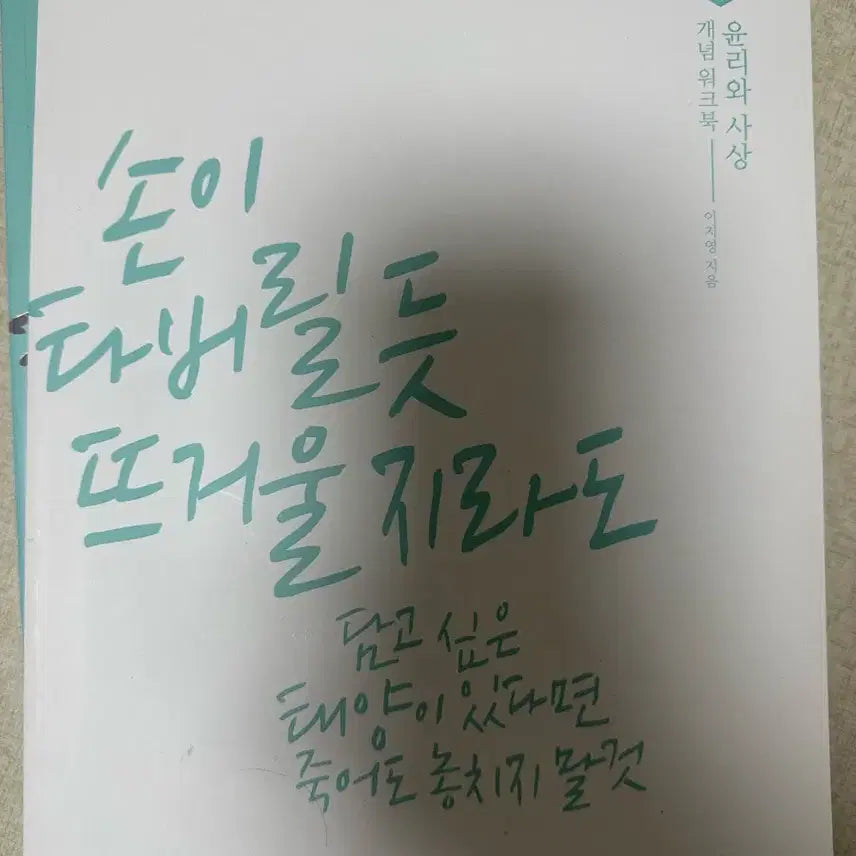 윤리와 사상
개념 워크북
이지영 지음
손이
타버릴 듯
뜨거울지라도
담고 싶은
태양이 있다면
죽어도 놓치지 말것